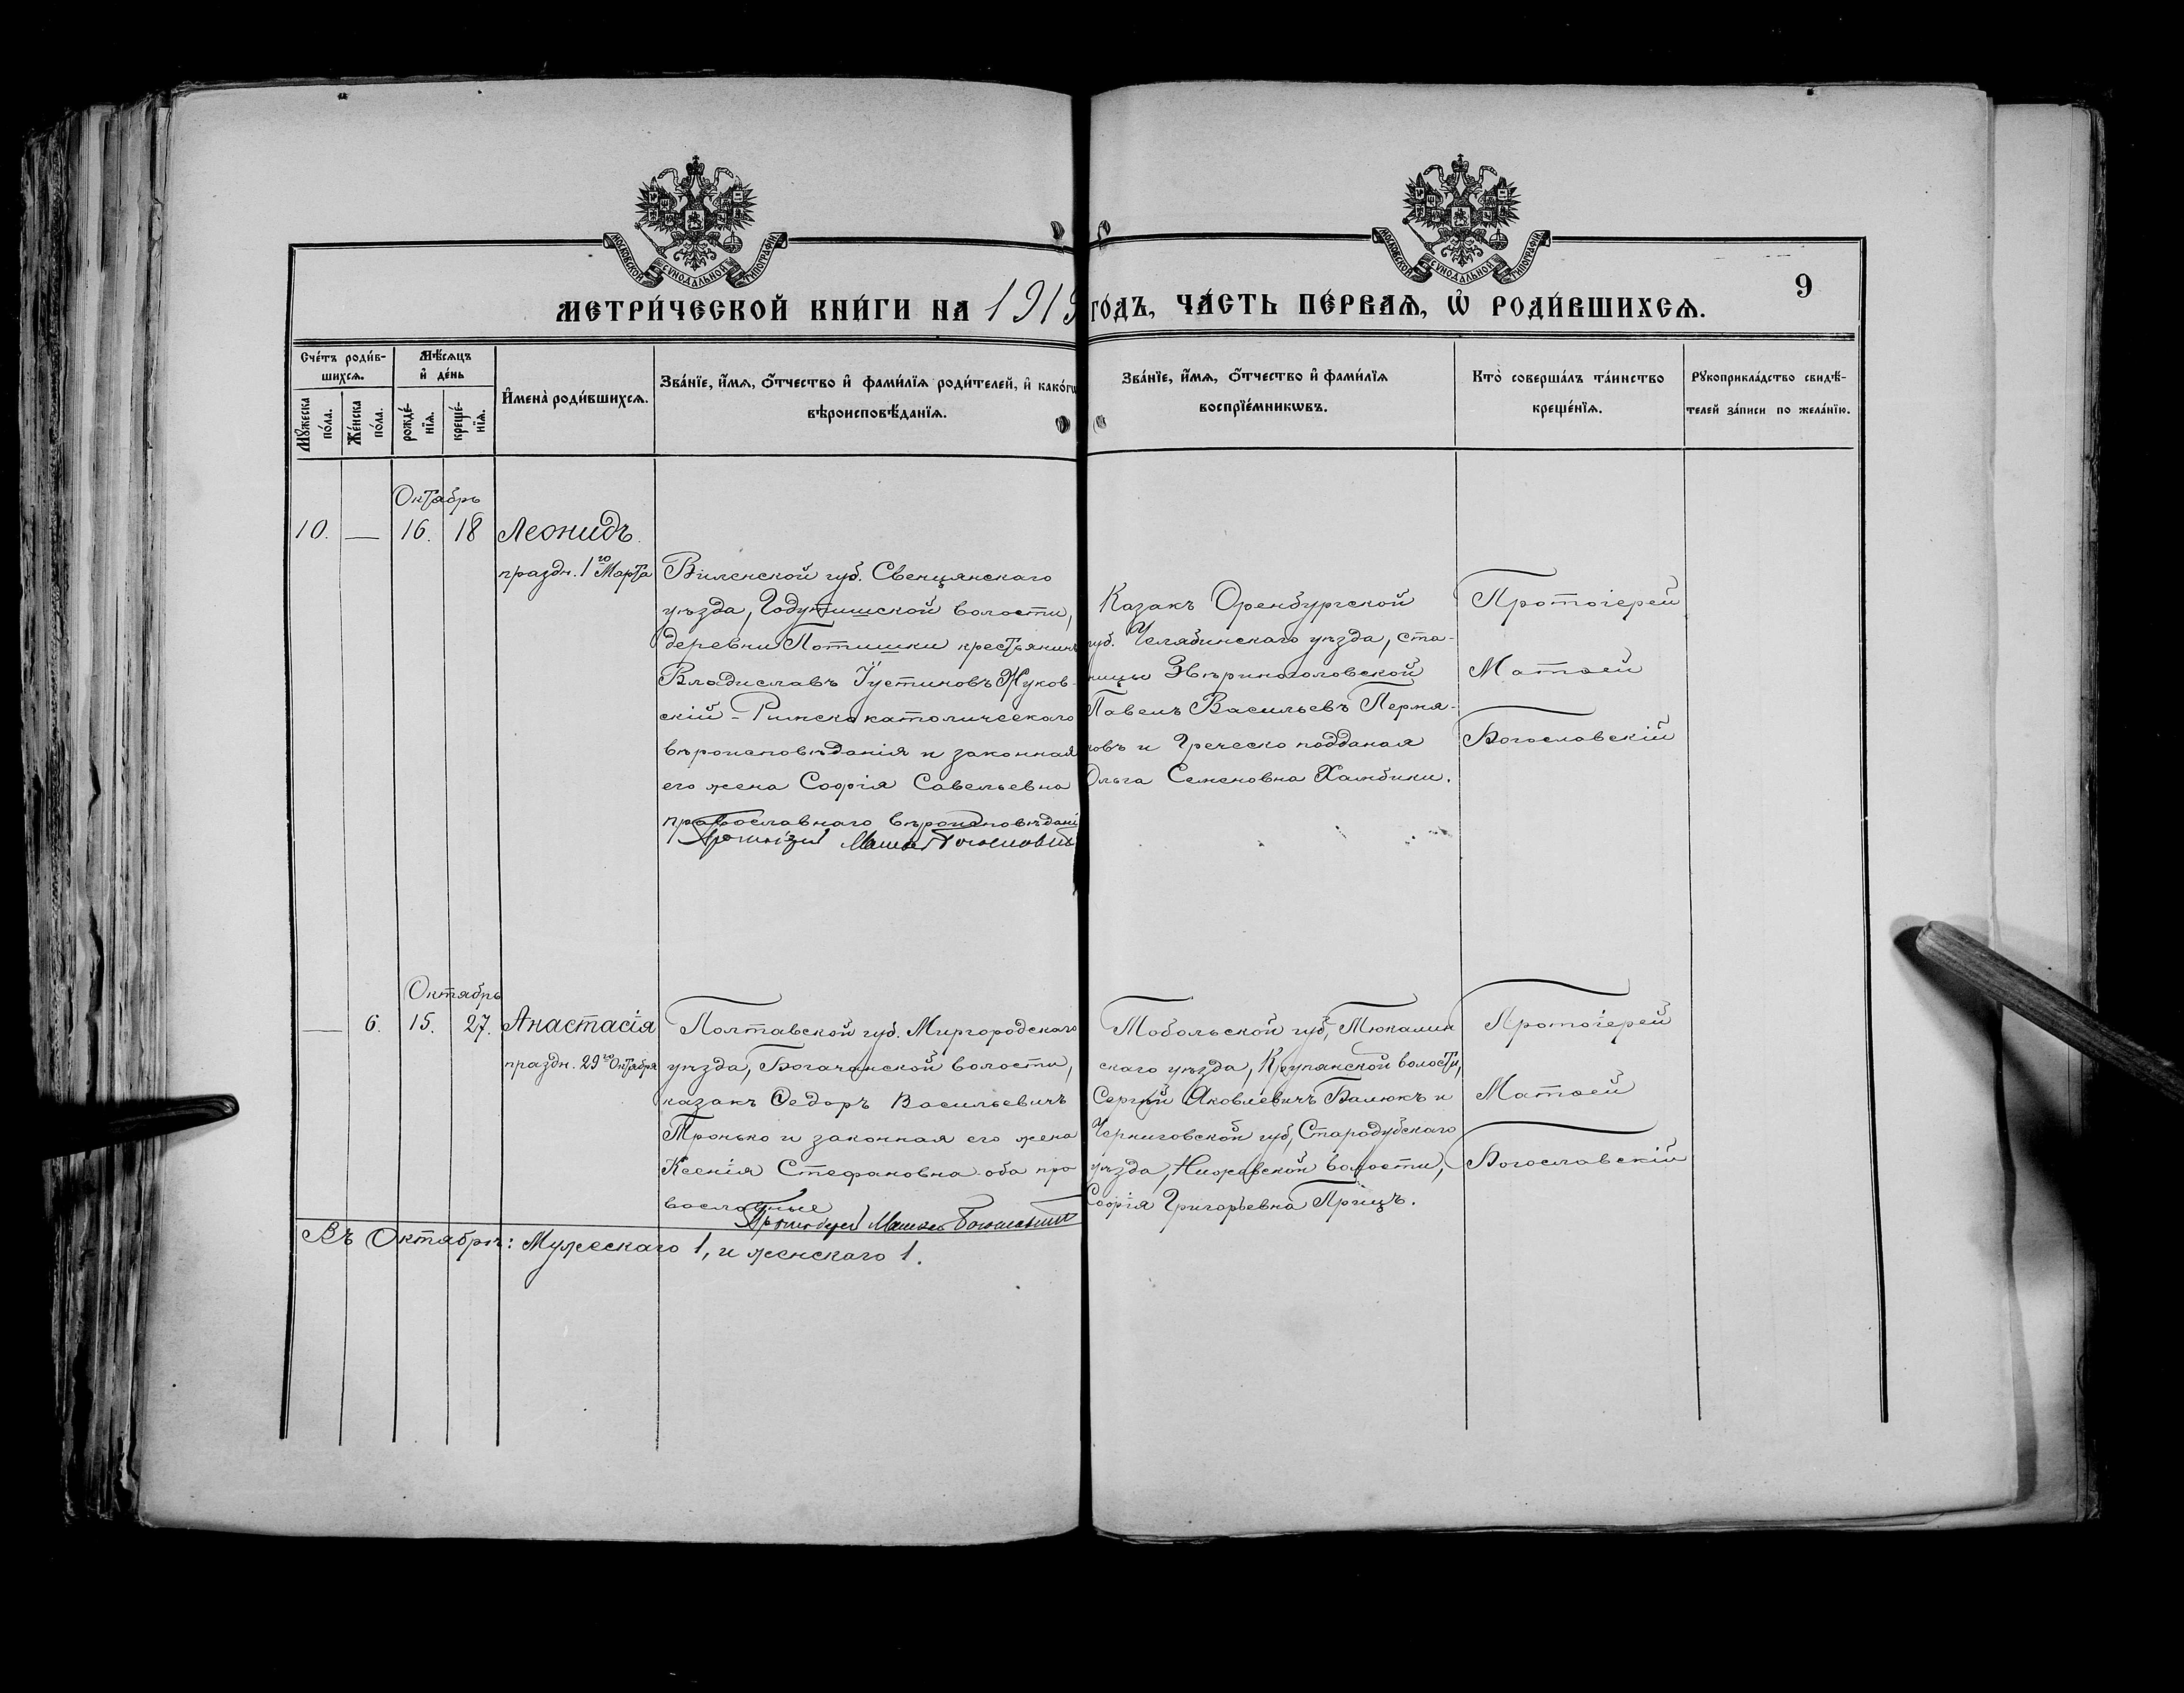 МОСКОВСКОЙ СУНОДАЛЬНОЙ ТИПОГРАФІИ
МОСКОВСКОЙ СУНОДАЛЬНОЙ ТИПОГРАФІИ
9
МЕТРИ́ЧЕСКОЙ КНИ́ГИ НА 1919 ГО́ДЪ, ЧА́СТЬ ПЕ́РВАѦ, Ѡ҆ РОДИ́ВШИХСѦ.
Сче́тъ роди́в-
шихсѧ.
Мꙋ́жеска
по́ла.
Же́нска
по́ла.
Мѣ́сѧцъ
и҆ де́нь
рожде́-
нїѧ.
креще́-
нїѧ.
И҆мена̀ роди́вшихсѧ.
Зва́нїе, и҆́мѧ, ѻ҆́тчество и҆ фами́лїѧ роди́телей, и҆ како́гѡ
вѣроисповѣ́данїѧ.
Зва́нїе, и҆́мѧ, ѻ҆́тчество и҆ фами́лїѧ
воспрїе́мникѡвъ.
Кто̀ соверша́лъ та́инство
креще́нїѧ.
Рꙋкоприкла́дство свидѣ́-
телей за́писи по жела́нїю.
Октябрь
10. — 16. 18 Леонидъ.
праздн. 1го Марта
Виленской губ. Свенцянскаго
уѣзда, Годутишской волости,
деревни Потишки крестьянинъ
Владиславъ Іустиновъ Жуков-
скій - Римско католическаго
вѣроисповѣданія и законная
его жена Софія Савельевна
православнаго вѣроисповѣдані
Протоіерей Матѳей Богословскій
Казакъ Оренбургской
губ. Челябинскаго уѣзда, ста-
ницы Звѣриноголовской
Павелъ Васильевъ Пермя-
ковъ и Греческо подданая
Ольга Семеновна Хамбики.
Протоіерей
Матѳей
Богословскій
Октябрь
— 6. 15. 27. Анастасія
праздн. 29го Октября
Полтавской губ. Миргородскаго
уѣзда, Богачанской волости,
казакъ Ѳедоръ Васильевичъ
Тронько и законная его жена
Ксенія Стефановна оба пра
вославные
Протоіерей Матѳей Богословскій
Тобольской губ, Тюкалин
скаго уѣзда, Крупянской волости,
Сергѣй Яковлевичъ Балюкъ и
Черниговской губ, Стародубскаго
уѣзда, волости,
Софія Григорьевна Прищъ.
Протоіерей
Матѳей
Богословскій
Въ Октябрѣ: Мужескаго 1, и женскаго 1.